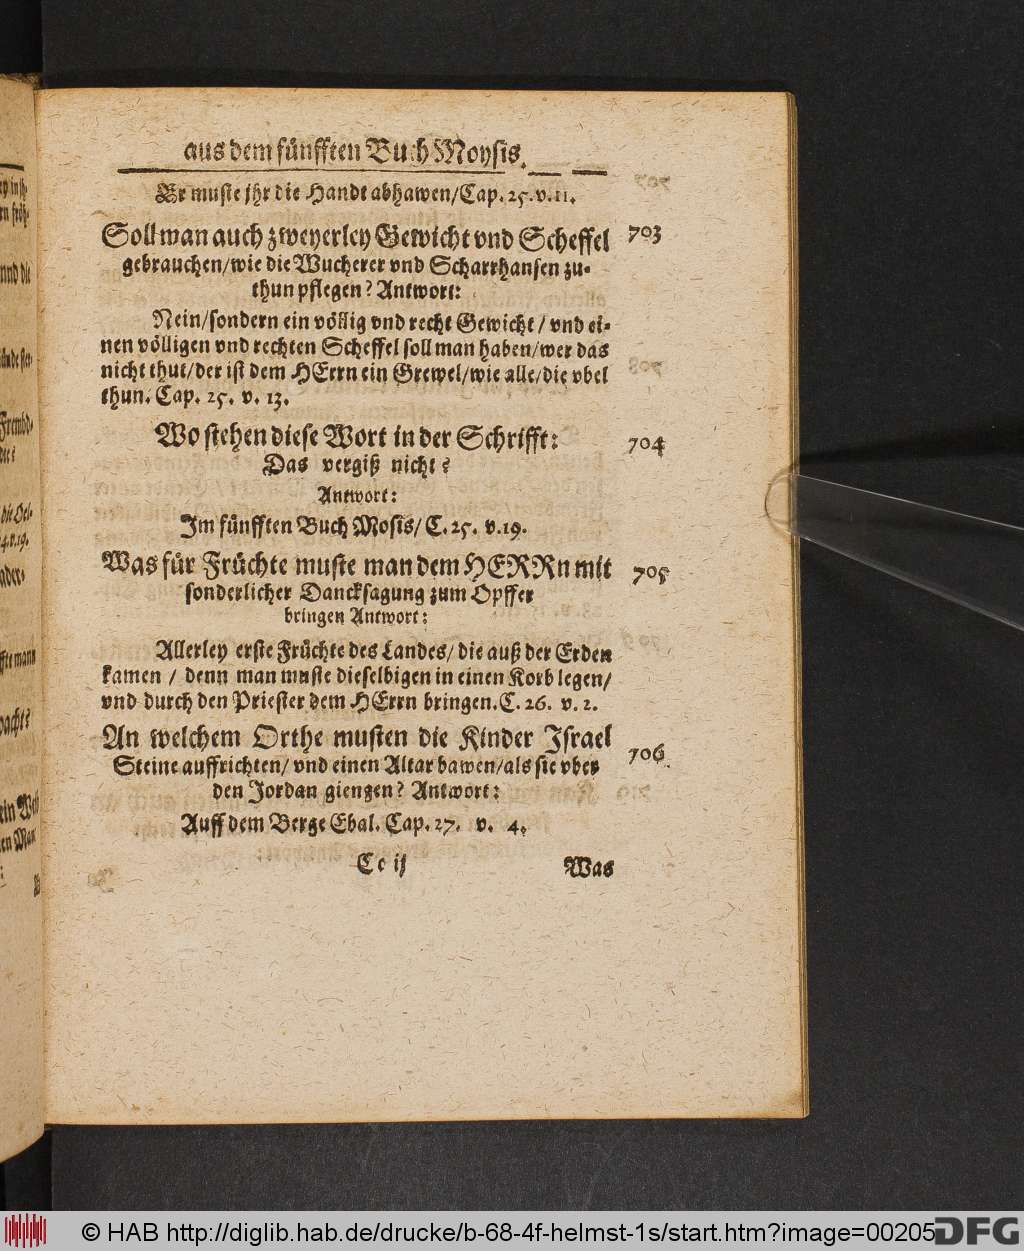 aus dem fünfften Buch Moysis.
Er muste jhr die Handt abhawen/ Cap. 25. v. 11.
Soll man auch zweyerley Gewicht vnd Scheffel 703
gebrauchen/ wie die Wucherer vnd Scharrhansen zu-
thun pflegen? Antwort:
Nein/ sondern ein völlig vnd recht Gewicht/ vnd ei-
nen völligen vnd rechten Scheffel soll man haben/ wer das
nicht thut/ der ist dem HErrn ein Grewel/ wie alle/ die vbel
thun. Cap. 25. v. 13.
Wo stehen diese Wort in der Schrifft: 704
Das vergiß nicht?
Antwort:
Im fünfften Buch Mosis/ C. 25. v. 19.
Was für Früchte muste man dem HERRn mit 705
sonderlicher Dancksagung zum Opffer
bringen Antwort:
Allerley erste Früchte des Landes/ die auß der Erden
kamen/ denn man muste dieselbigen in einen Korb legen/
vnd durch den Priester dem HErrn bringen. C. 26. v. 2.
An welchem Orthe musten die Kinder Israel 706
Steine auffrichten/ vnd einen Altar bawen/ als sie vber
den Jordan giengen? Antwort:
Auff dem Berge Ebal. Cap. 27. v. 4.
Cc ij Was
© HAB http://diglib.hab.de/drucke/b-68-4f-helmst-1s/start.htm?image=00205
DFG